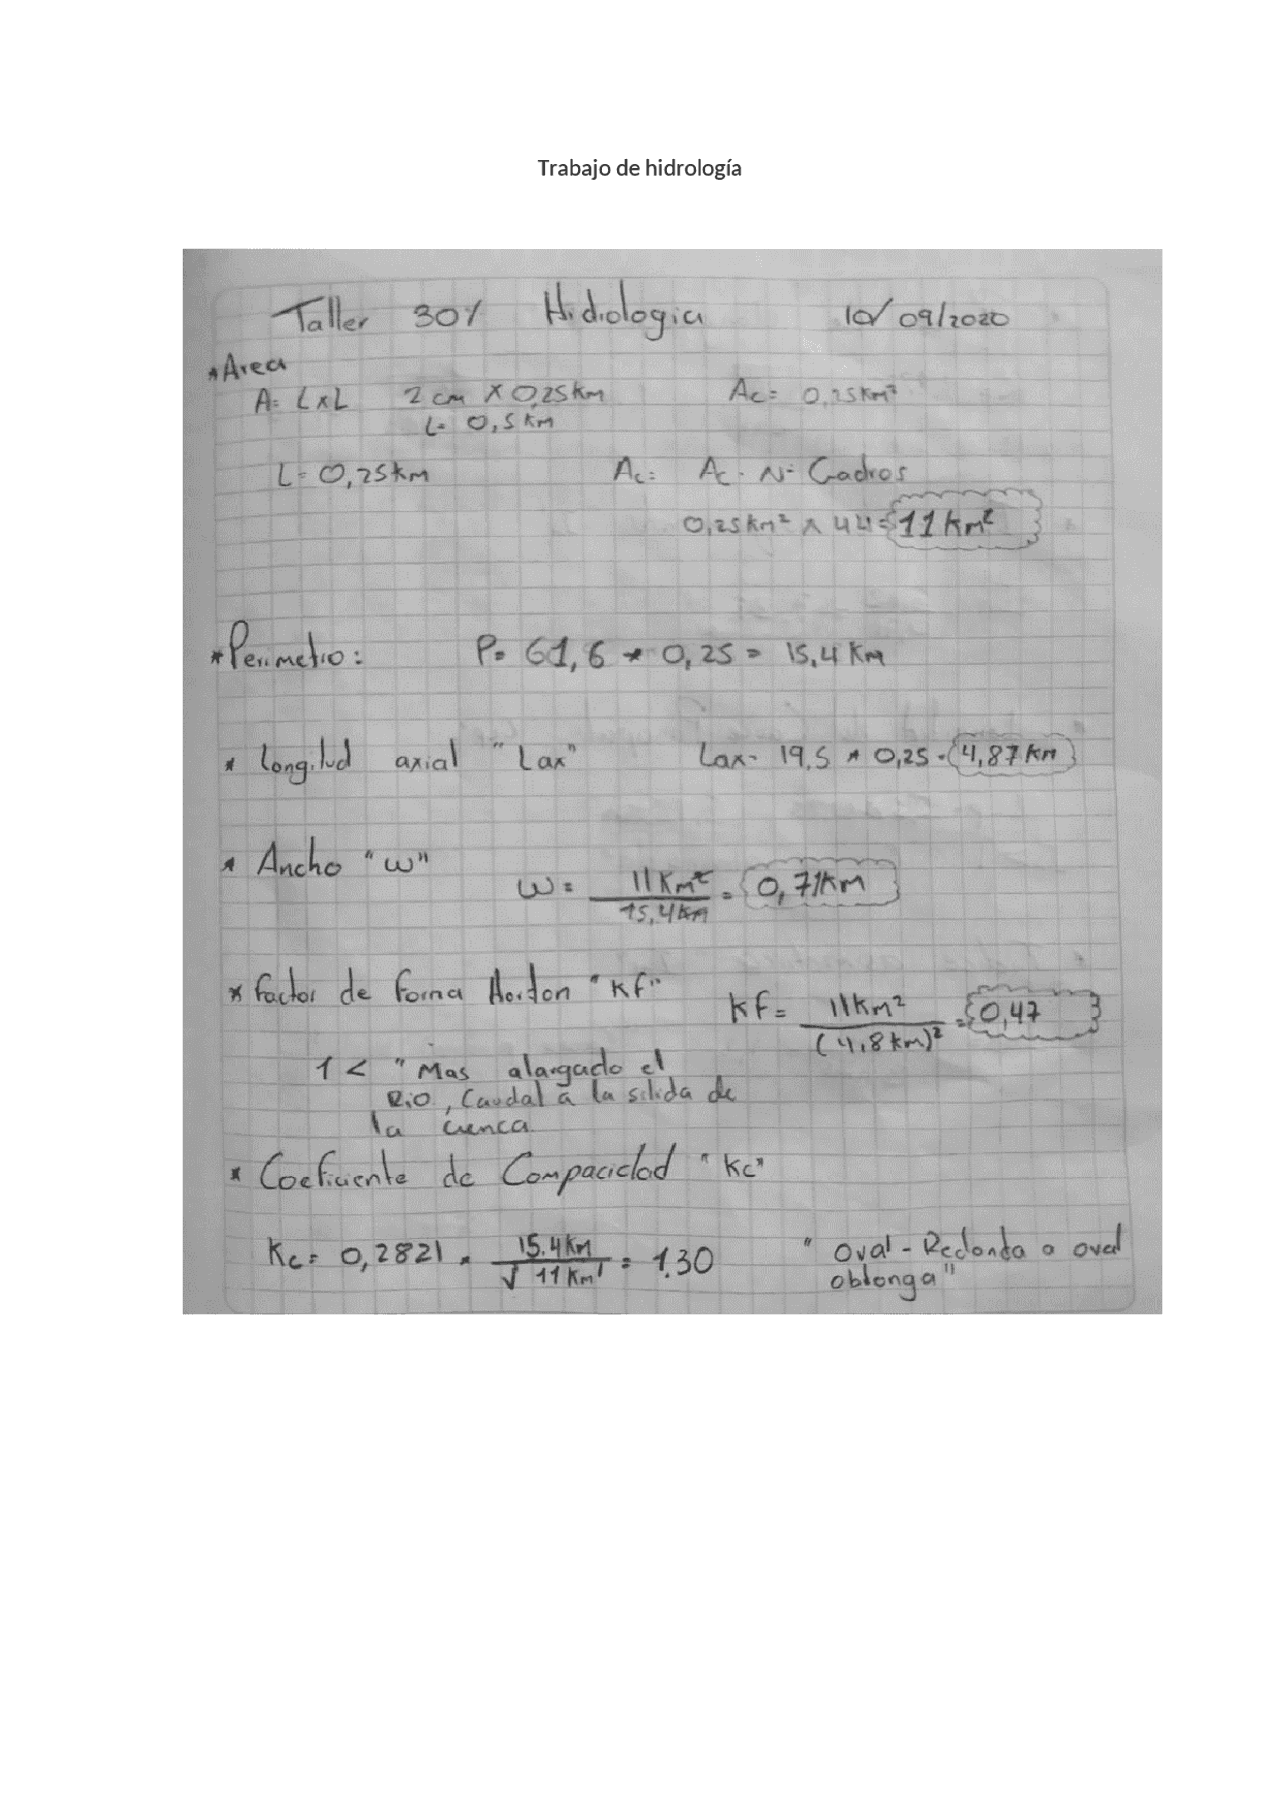 Trabajo de hidrología
Taller 30% Hidrologia 10/09/2020
* Area
A= LxL 2 cm x 0,25 Km Ac= 0,25 Km²
L= 0,5 Km
L= 0,25 Km Ac= Ac · Nº Cadros
0,25 Km² x 44 = 11 Km²
* Perimetro: P= 61,6 * 0,25 = 15,4 Km
* Longitud axial "Lax" Lax= 19,5 * 0,25 = 4,87 Km
* Ancho "w"
w = 11 Km² / 15,4 Km = 0,71 Km
* Factor de Forma Horton "Kf"
Kf = 11 Km² / (4,8 km)² = 0,47
1 < "Mas alargado el
Rio, Caudal a la salida de
la cuenca
* Coeficiente de Compacidad "Kc"
Kc= 0,2821 * 15.4 Km / √11 Km = 1.30 "Oval - Redonda o oval
oblonga"